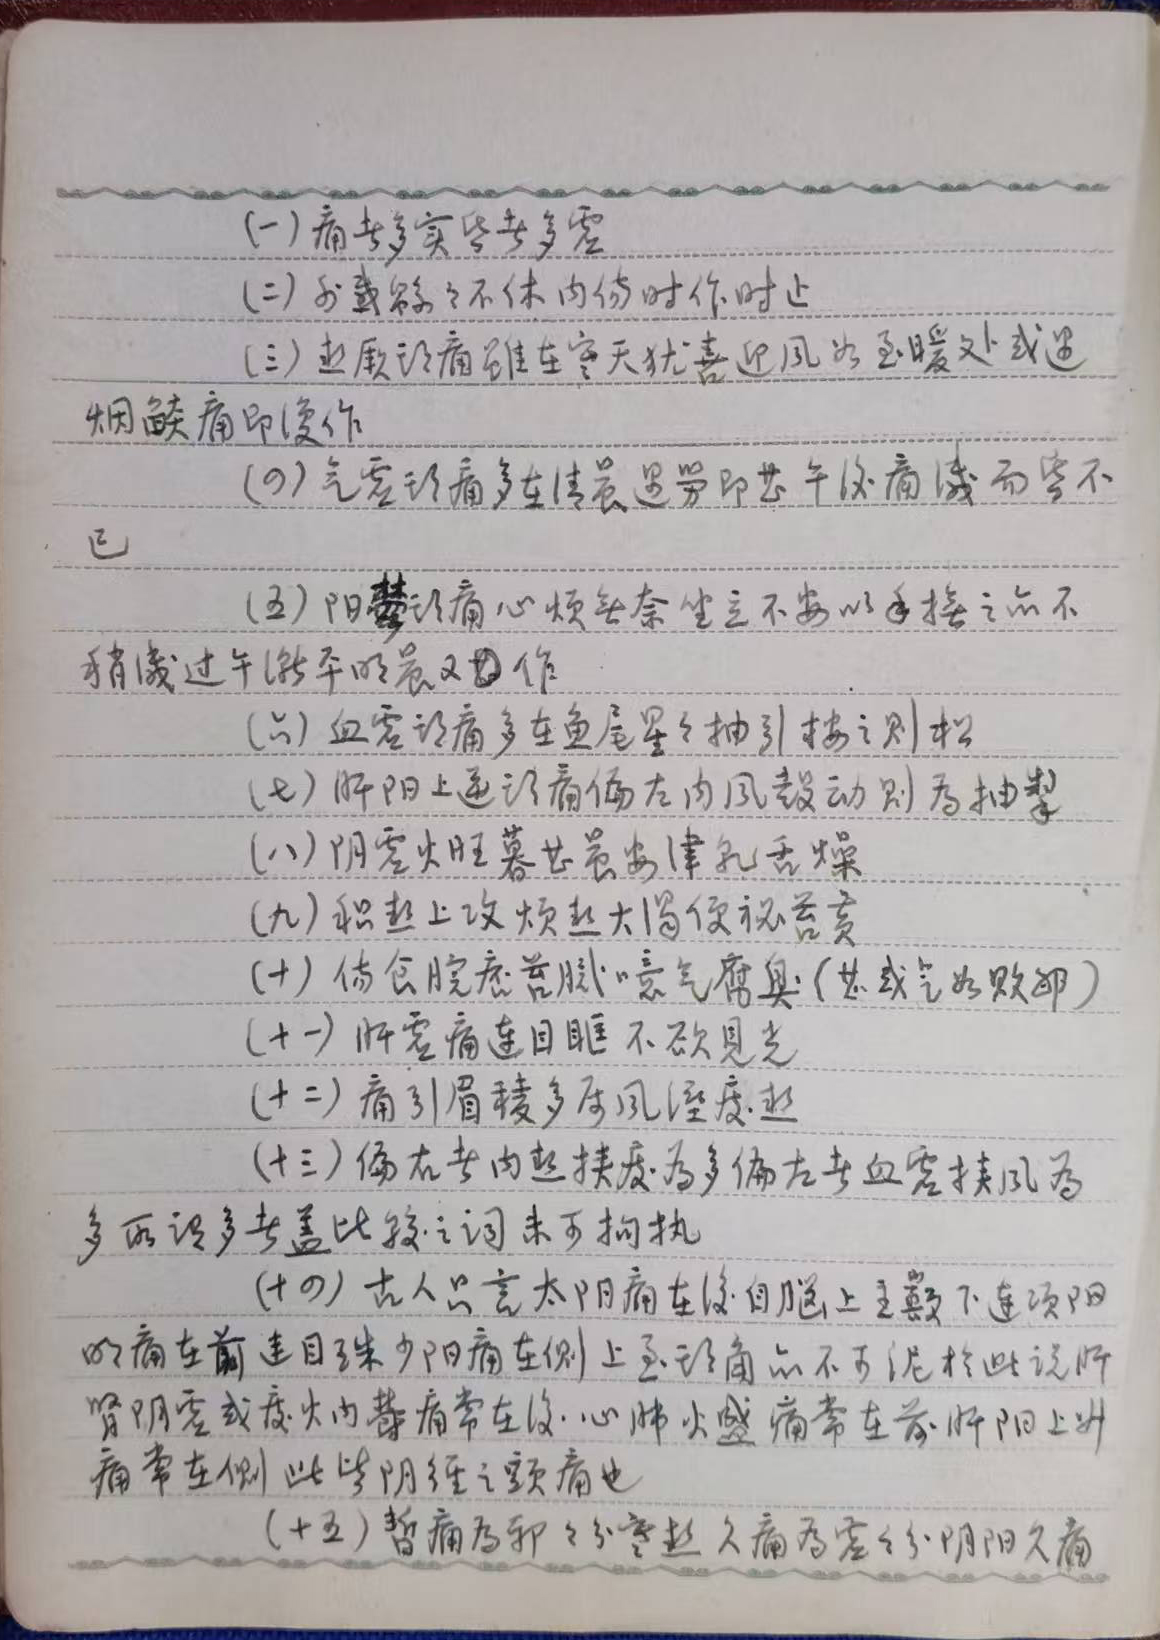 (一)痛者多实晕者多虚
(二)外感绵々不休内伤时作时止
(三)热厥头痛虽在寒天犹喜迎风如至暖处或遇
烟餤痛即復作
(四)气虚头痛多在清晨遇劳即甚午後痛减而晕不
已
(五)阳鬱头痛心烦无奈坐立不安以手按之亦不
稍减过午渐平明晨又作
(六)血虚头痛多在鱼尾星々抽引按之则松
(七)肝阳上逆头痛偏左内风鼓动则为抽掣
(八)阴虚火旺暮甚晨安津乾舌燥
(九)积热上攻烦热大渴便祕苔黄
(十)伤食脘痞苔腻噫气腐臭(甚或气如败卵)
(十一)肝虚痛连目眶不欲见光
(十二)痛引眉稜多属风溼痰热
(十三)偏右者内热挟痰为多偏左者血虚挟风为
多所谓多者盖比较之词未可拘执
(十四)古人只言太阳痛在後自脑上至巅下连项阳
明痛在前连目珠少阳痛在侧上至头角亦不可泥於此说肝
肾阴虚或痰火内鬱痛常在後心肺火盛痛常在前肝阳上升
痛常在侧此皆阴经之头痛也
(十五)暂痛为邪々分寒热久痛为虚々分阴阳久痛